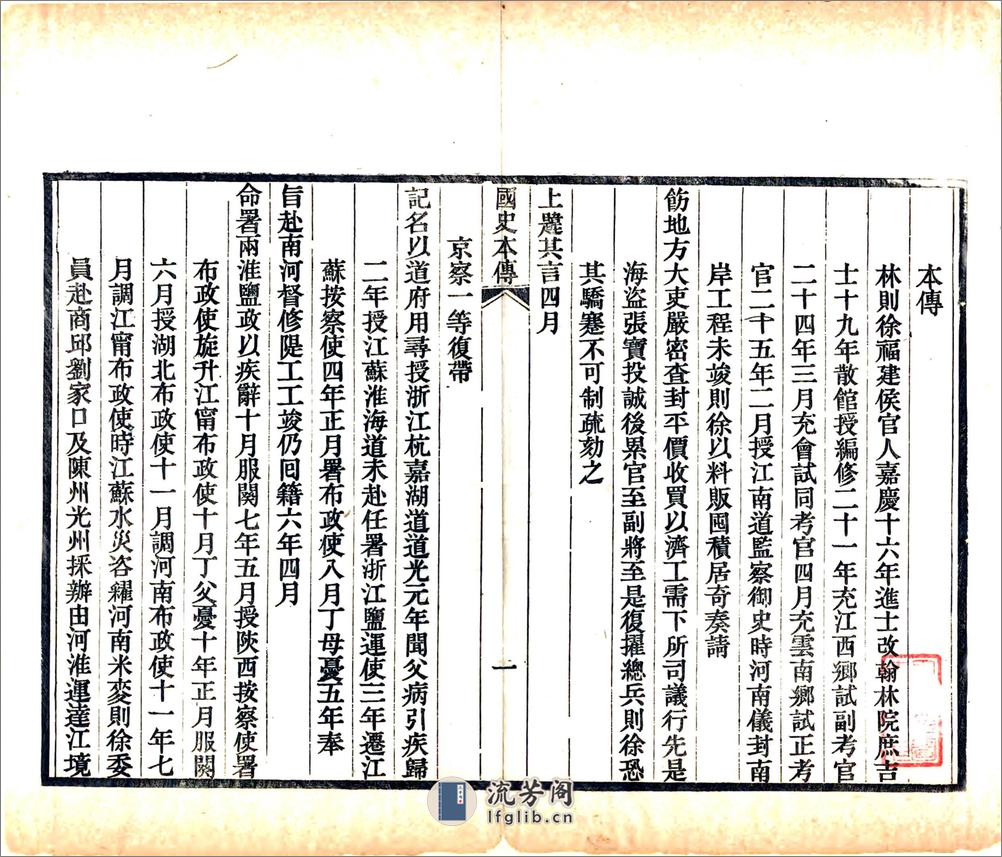 本傳
林則徐福建侯官人嘉慶十六年進士改翰林院庶吉
士十九年散館授編修二十一年充江西鄉試副考官
二十四年三月充會試同考官四月充雲南鄉試正考
官二十五年二月授江南道監察御史時河南儀封南
岸工程未竣則徐以料販囤積居奇奏請
飭地方大吏嚴密查封平價收買以濟工需下所司議行先是
海盜張寶投誠後累官至副將至是復擢總兵則徐恐
其驕蹇不可制疏劾之
上韙其言四月
國史本傳
一
京察一等復帶
記名以道府用尋授浙江杭嘉湖道道光元年聞父病引疾歸
二年授江蘇淮海道未赴任署浙江鹽運使三年遷江
蘇按察使四年正月署布政使八月丁母憂五年奉
旨赴南河督修隄工工竣仍回籍六年四月
命署兩淮鹽政以疾辭十月服闋七年五月授陝西按察使署
布政使旋升江甯布政使十月丁父憂十年正月服闋
六月授湖北布政使十一月調河南布政使十一年七
月調江甯布政使時江蘇水災咨糴河南米麥則徐委
員赴商邱劉家口及陳州光州採辦由河淮運達江境
流芳阁
lfglib.cn